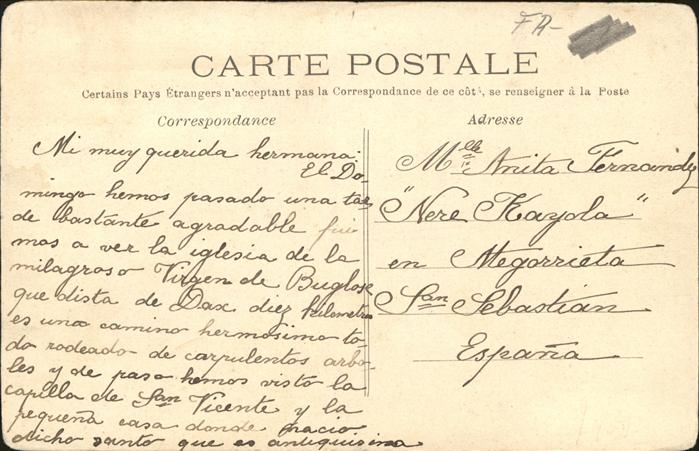 FA-
CARTE POSTALE
Certains Pays Étrangers n'acceptant pas la Correspondance de ce côté, se renseigner à la Poste
Correspondance
Adresse
Mi muy querida hermana:
El Do
mingo hemos pasado una tar
de bastante agradable fui
mos a ver la iglesia de la
milagroso Virgen de Buglose
que dista de Dax diez kilometros
es uno camino hermosimo to
do rodeado de carpulentos arbo
les y de paso hemos visto la
capilla de San Vicente y la
pequeña casa donde nacio
dicho santo que es antiquisima
Mlle Anita Fernandz
"Nere Kayola"
en Ategorrieta
San Sebastián
España